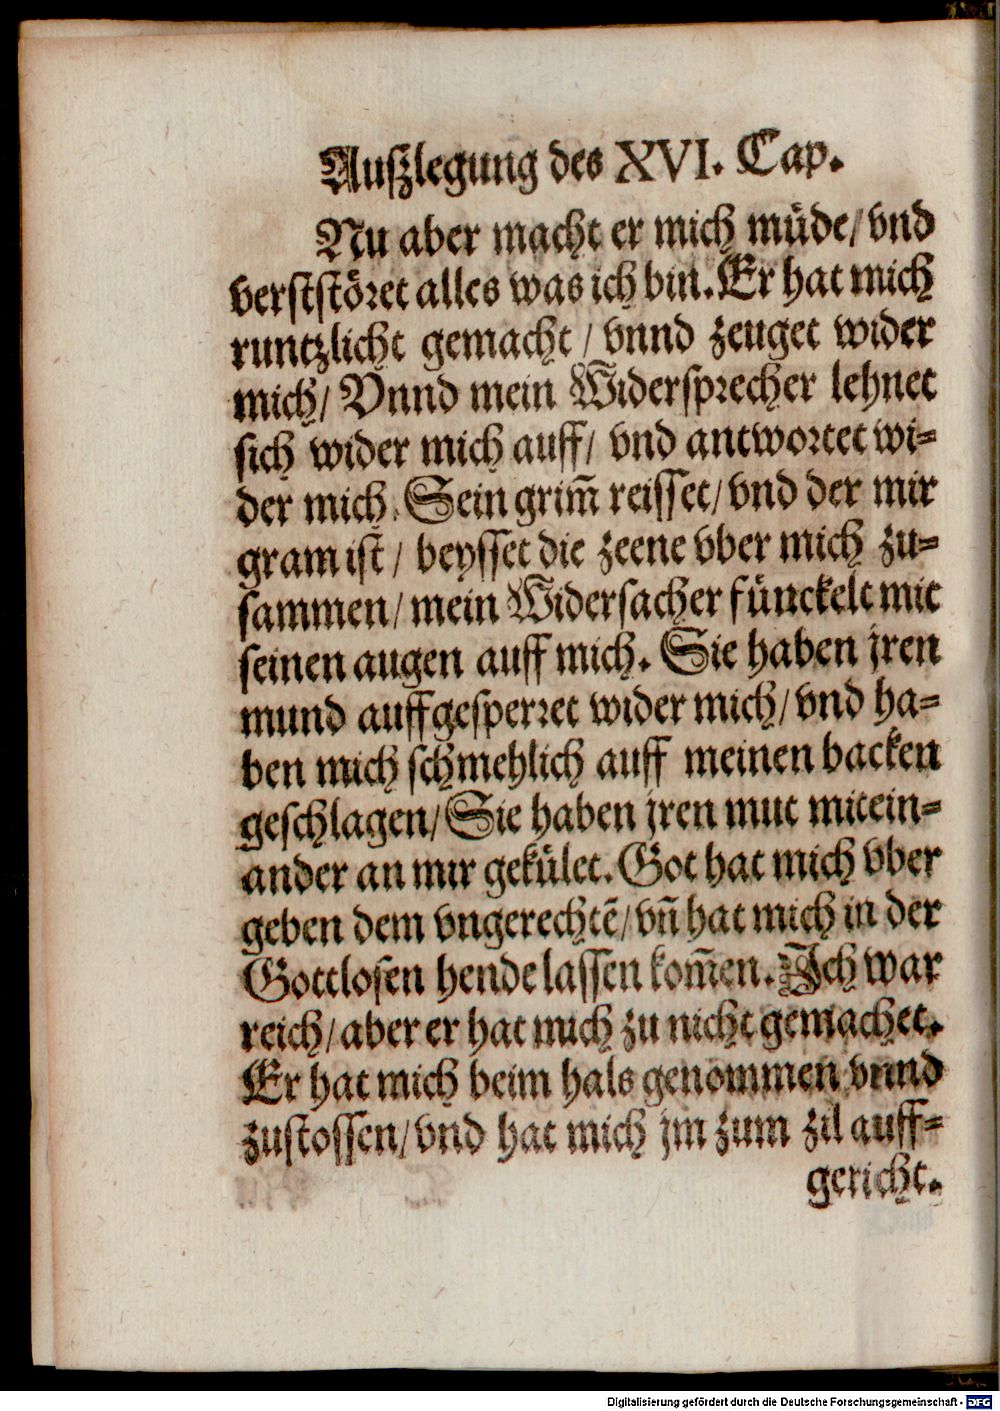 Auſzlegung des XVI. Cap.
Nu aber macht er mich müde/ vnd
verſtstöret alles was ich bin. Er hat mich
runtzlicht gemacht / vnnd zeuget wider
mich/ Vnnd mein Widerſprecher lehnet
sich wider mich auff/ vnd antwortet wi=
der mich. Sein grim̃ reiſſet/ vnd der mir
gram iſt / beyſſet die zeene vber mich zu=
ſammen/ mein Widerſacher fünckelt mit
ſeinen augen auff mich. Sie haben jren
mund auffgeſperret wider mich/ vnd ha=
ben mich ſchmehlich auff meinen backen
geſchlagen/ Sie haben jren mut mitein=
ander an mir gekület. Got hat mich vber
geben dem vngerechtẽ/ vñ hat mich in der
Gottloſen hende laſſen kom̃en. Ich war
reich/ aber er hat mich zu nicht gemachet.
Er hat mich beim hals genommen vnnd
zuſtoſſen/ vnd hat mich jm zum zil auff=
gericht.
Digitalisierung gefördert durch die Deutsche Forschungsgemeinschaft - DFG